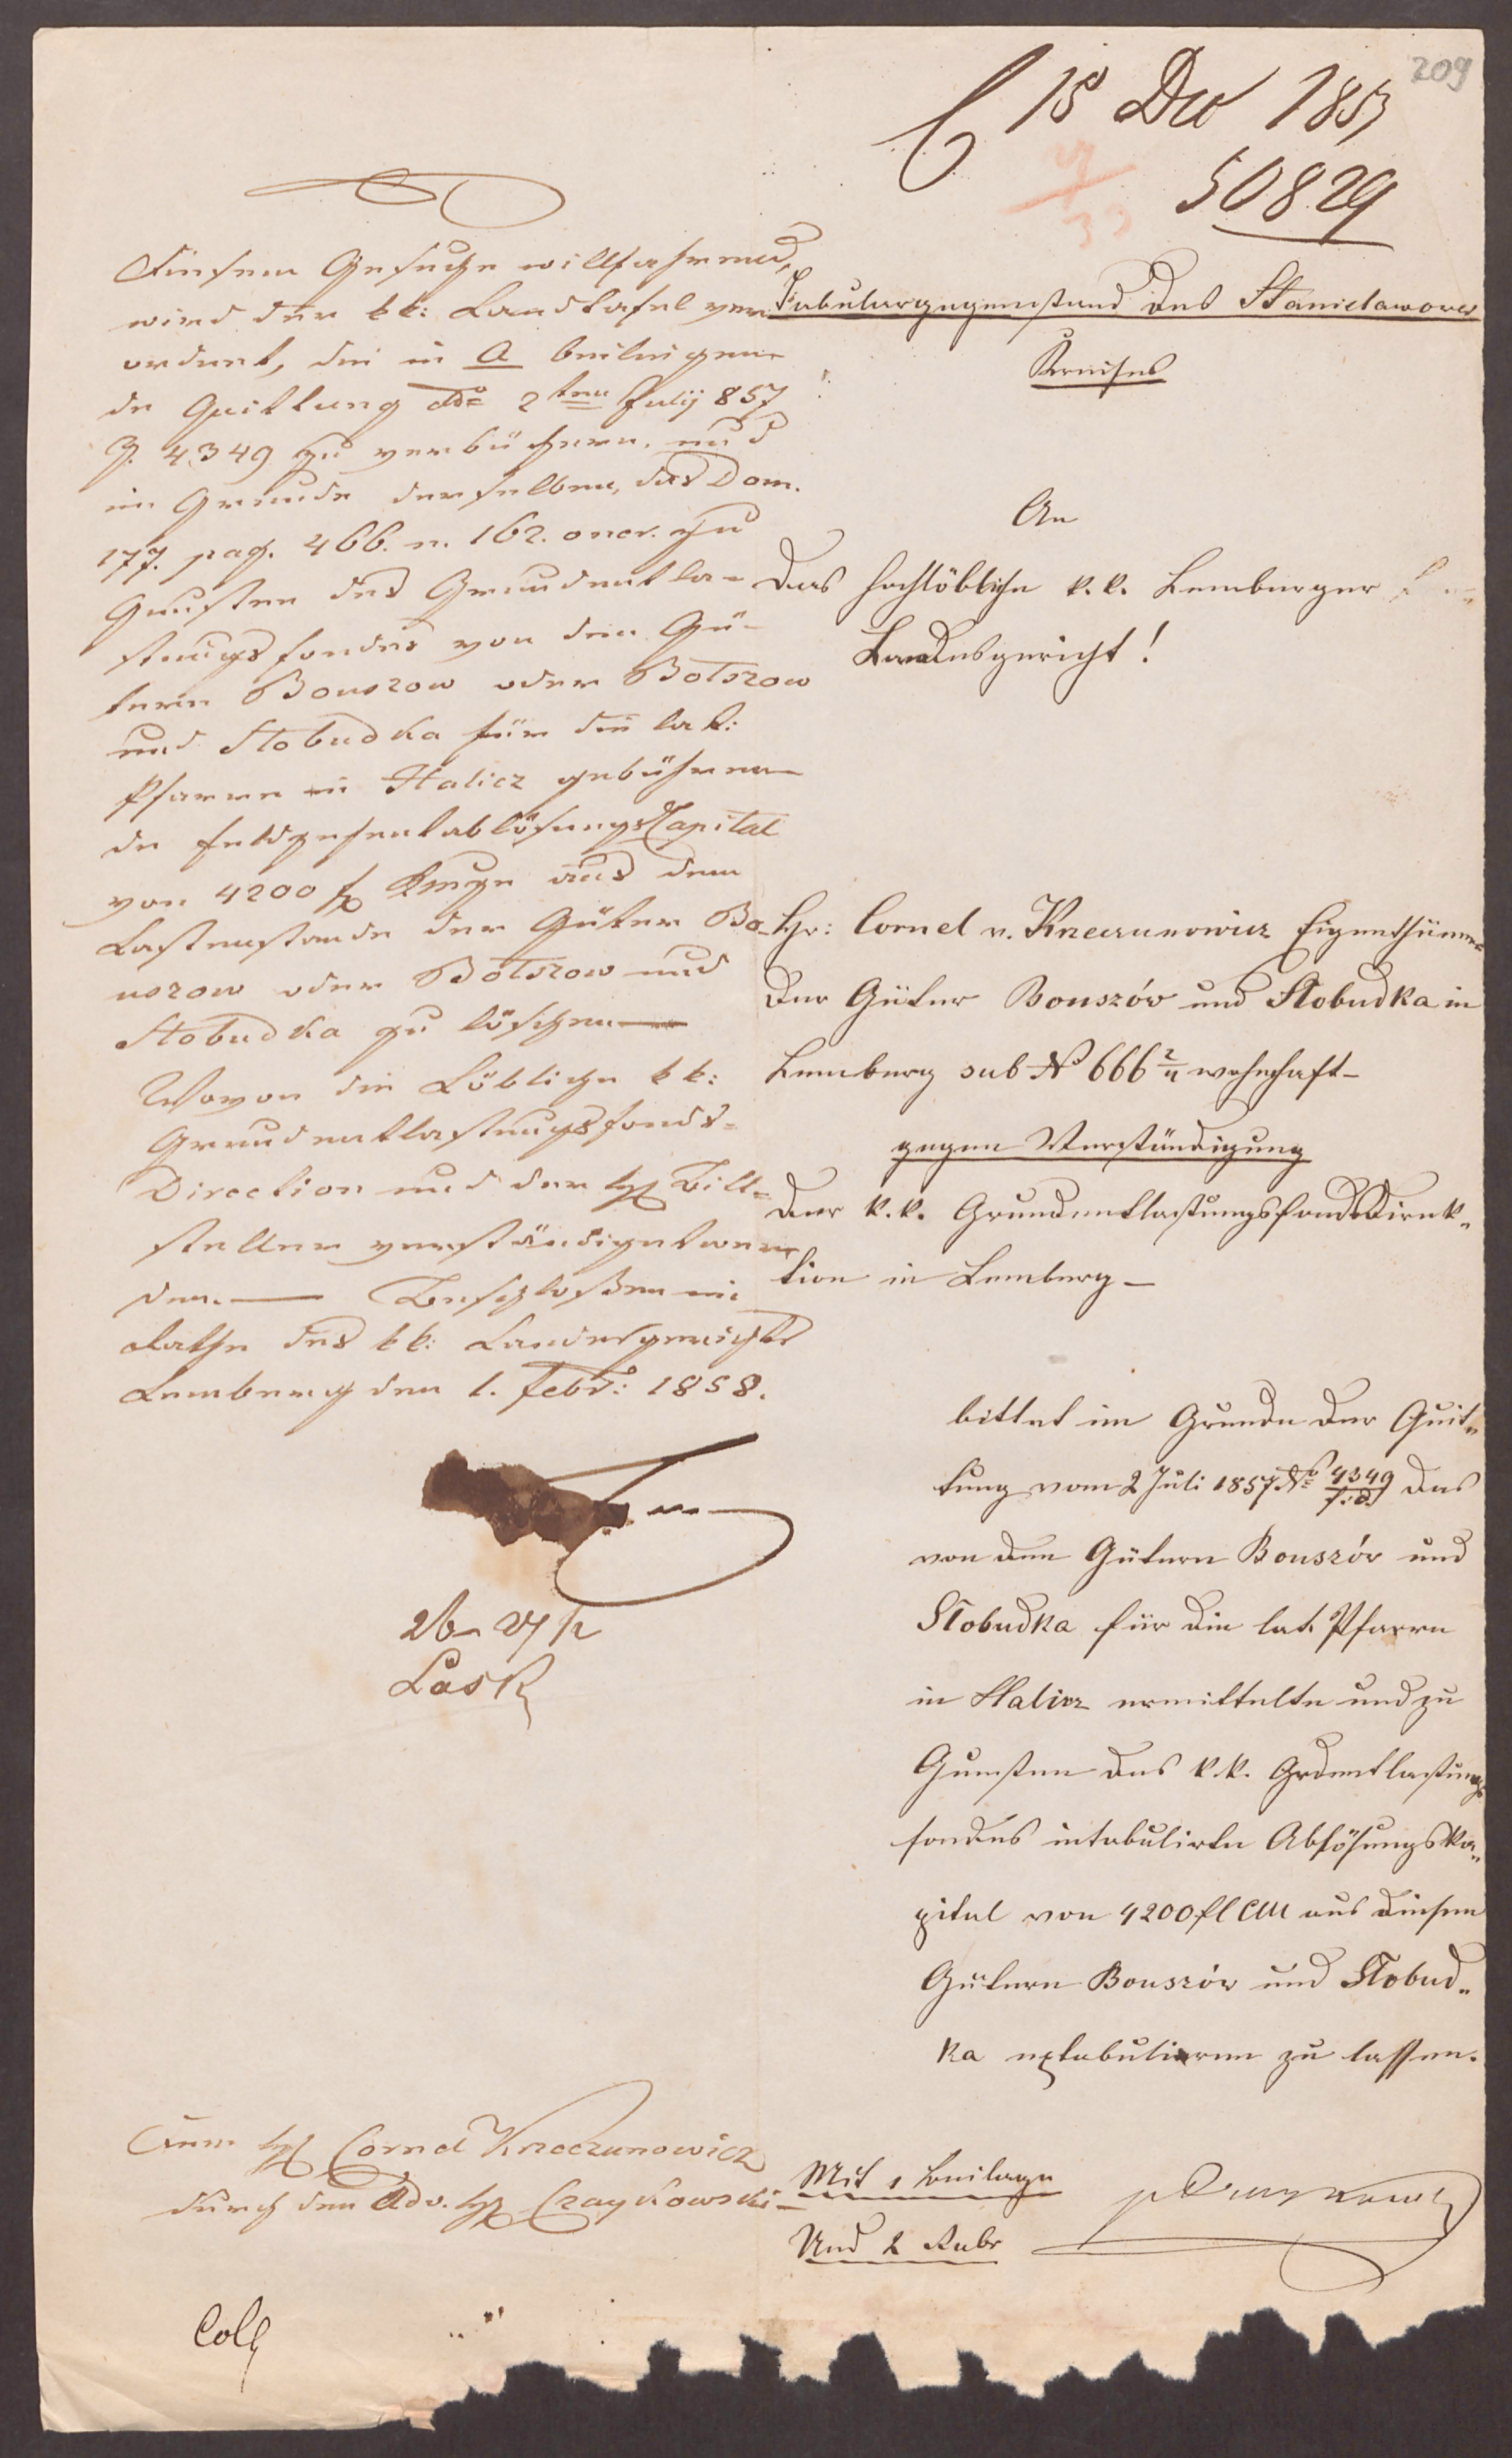 209
15 Dec 1857
50829
Tabulargegenstand des Stanislawower
Kreises
An
Das hochlöbliche k. k. Lemberger
Landesgericht!
Hr: Cornel v. Krzeczunowicz Eigenthümer
der Güter Bouszów und Słobudka in
Lemberg sub N° 666 2/4 wohnhaft –
gegen Verständigung
der k. k. Grundentlastungsfonds Direk„
tion in Lemberg –
bittet im Grunde der Quit„
tung vom 2 Juli 1857 N° 4349 das
von den Gütern Bouszów und
Słobudka für die lat. Pfarre
in Halicz ermittelte und zu
Gunsten des k. k. Grdentlastungs
fondes intabulirte Ablösungska„
pital von 4200 fl CM aus diesen
Gütern Bouszów und Słobud„
ka extabulieren zu lassen.
Mit 1 Beilage
Und 2 Rubr
Diesem Gesuche willfahrend,
wird der kk: Landtafel ver
ordnet, die in A beiliegen-
de Quittung ddo 2ten Julij 857
Z. 4349 zu verbüchern, und
im Grunde derselben, das Dom.
177. pag. 466. n. 162. oner. zu
Gunsten des Grundentla-
stungsfondes von den Gü-
tern Bouszow oder Bołszow
und Słobudka für die lat:
Pfarre in Halicz gebühren-
de Feldzehentablösungs Capital
von 4200 f CMze aus dem
Lastenstande der Güter Bo-
uszow oder Bołszow und
Słobudka zu löschen —
Wovon die Löbliche kk:
Grundentlastungsfonds-
Direction und der H Bitt-
steller verständiget wer
den. — Beschloßen im
Rathe des kk: Landesgerichts
Lemberg den 1. Febr: 1858.
Dem H Cornel Krzeczunowicz
durch den Adv. H Czaykowski –